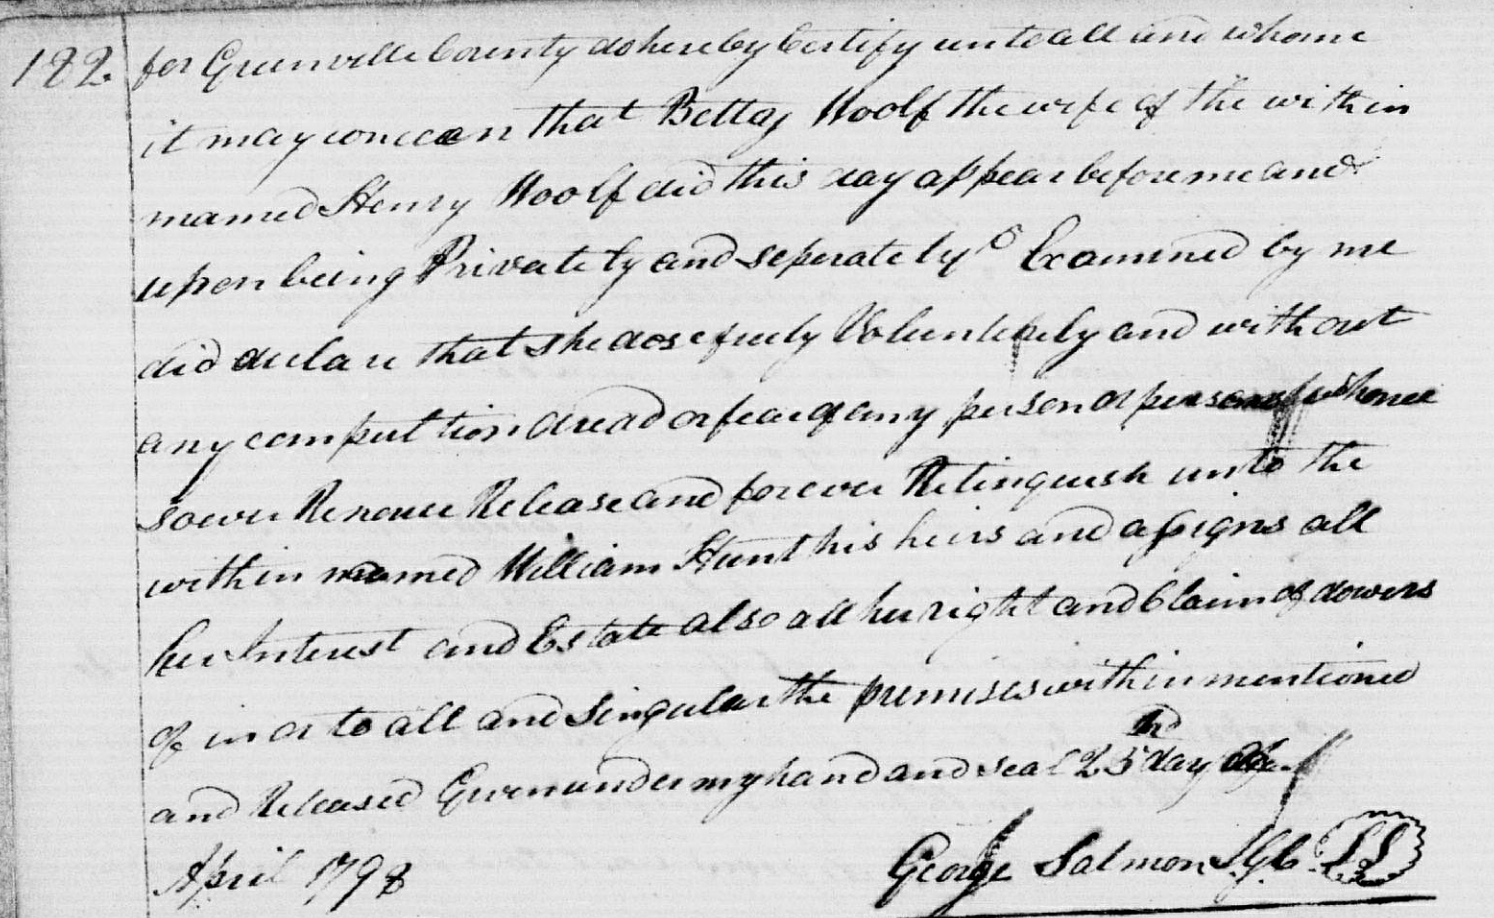 182. for Greenville County do hereby Certify unto all and whome
it may concean that Bettey Woolf the wife of the within
named Henry Woolf did this day appear before me and
upon being Privately and seperately Examined by me
did declare that she dose freely Volunterely and without
any compultion dread or fear of any person or persons whomee
soever Renouce Release and forever Relinquish unto the
within named William Hunt his heirs and assigns all
her Interest and Estate also all her right and Claim of dowers
of in or to all and Singular the premises within mentioned
and Released Given under my hand and seal 25th day of
April 1798 George Salmon J.G.C. LS